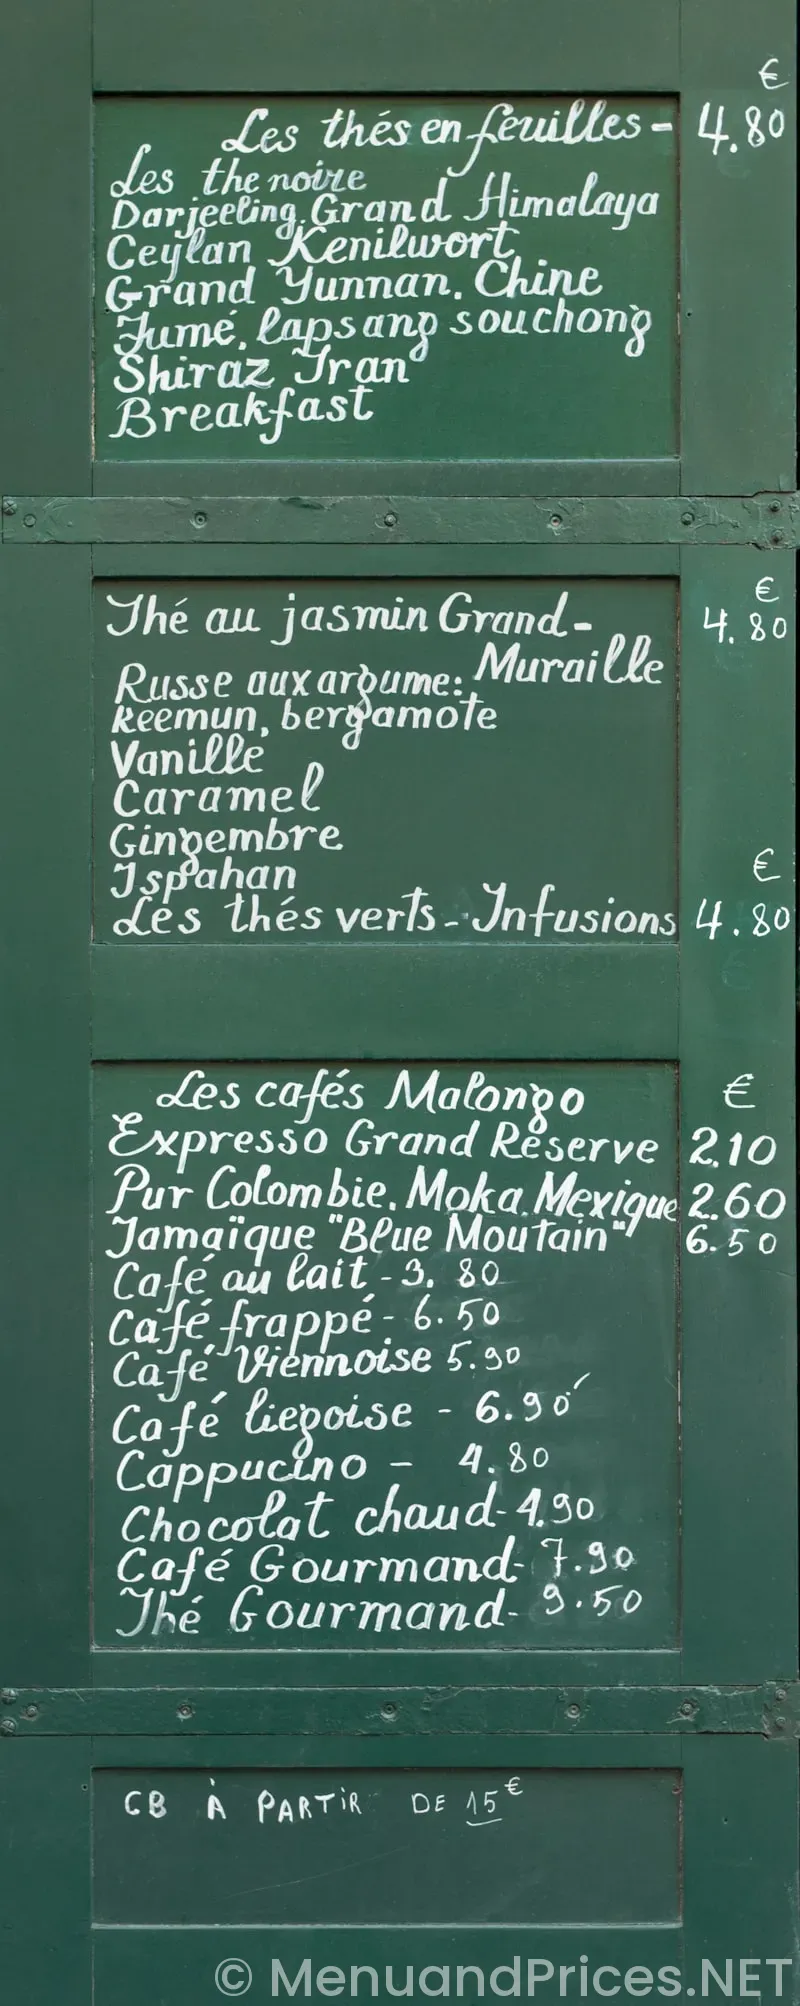 €
Les thés en feuilles - 4.80
Les the noire
Darjeeling. Grand Himalaya
Ceylan Kenilwort
Grand Yunnan. Chine
Fumé, lapsang souchong
Shiraz Iran
Breakfast
€
Thé au jasmin Grand- 4.80
Muraille
Russe aux argume:
keemun, bergamote
Vanille
Caramel
Gingembre
Ispahan
€
Les thés verts - Infusions 4.80
Les cafés Malongo €
Expresso Grand Réserve 2.10
Pur Colombie. Moka. Mexique 2.60
Jamaïque "Blue Moutain" 6.50
Café au lait - 3.80
Café frappé - 6.50
Café Viennoise 5.90
Café liegoise - 6.90
Cappucino - 4.80
Chocolat chaud - 4.90
Café Gourmand - 7.90
Thé Gourmand - 9.50
CB À PARTIR DE 15€
© MenuandPrices.NET